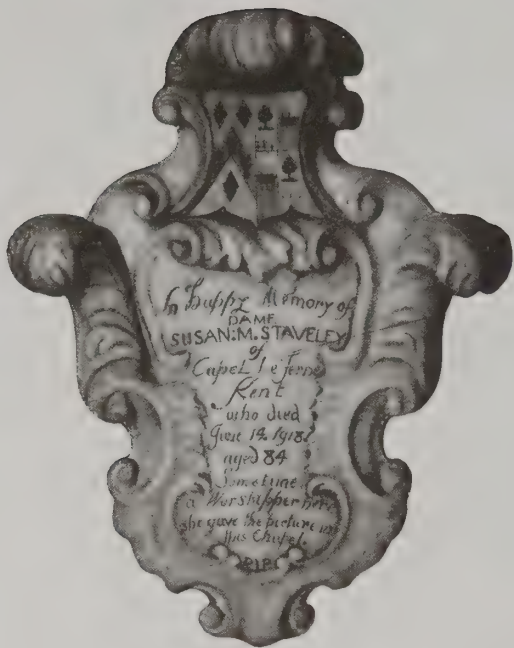 In Happy Memory of
DAME
SUSAN: M. STAVELEY
of
Capel le ferne
Kent
who died
June 14. 1918.
aged 84
Sometime
a Worshipper here
she gave the picture in
this Chapel.
R.I.P.